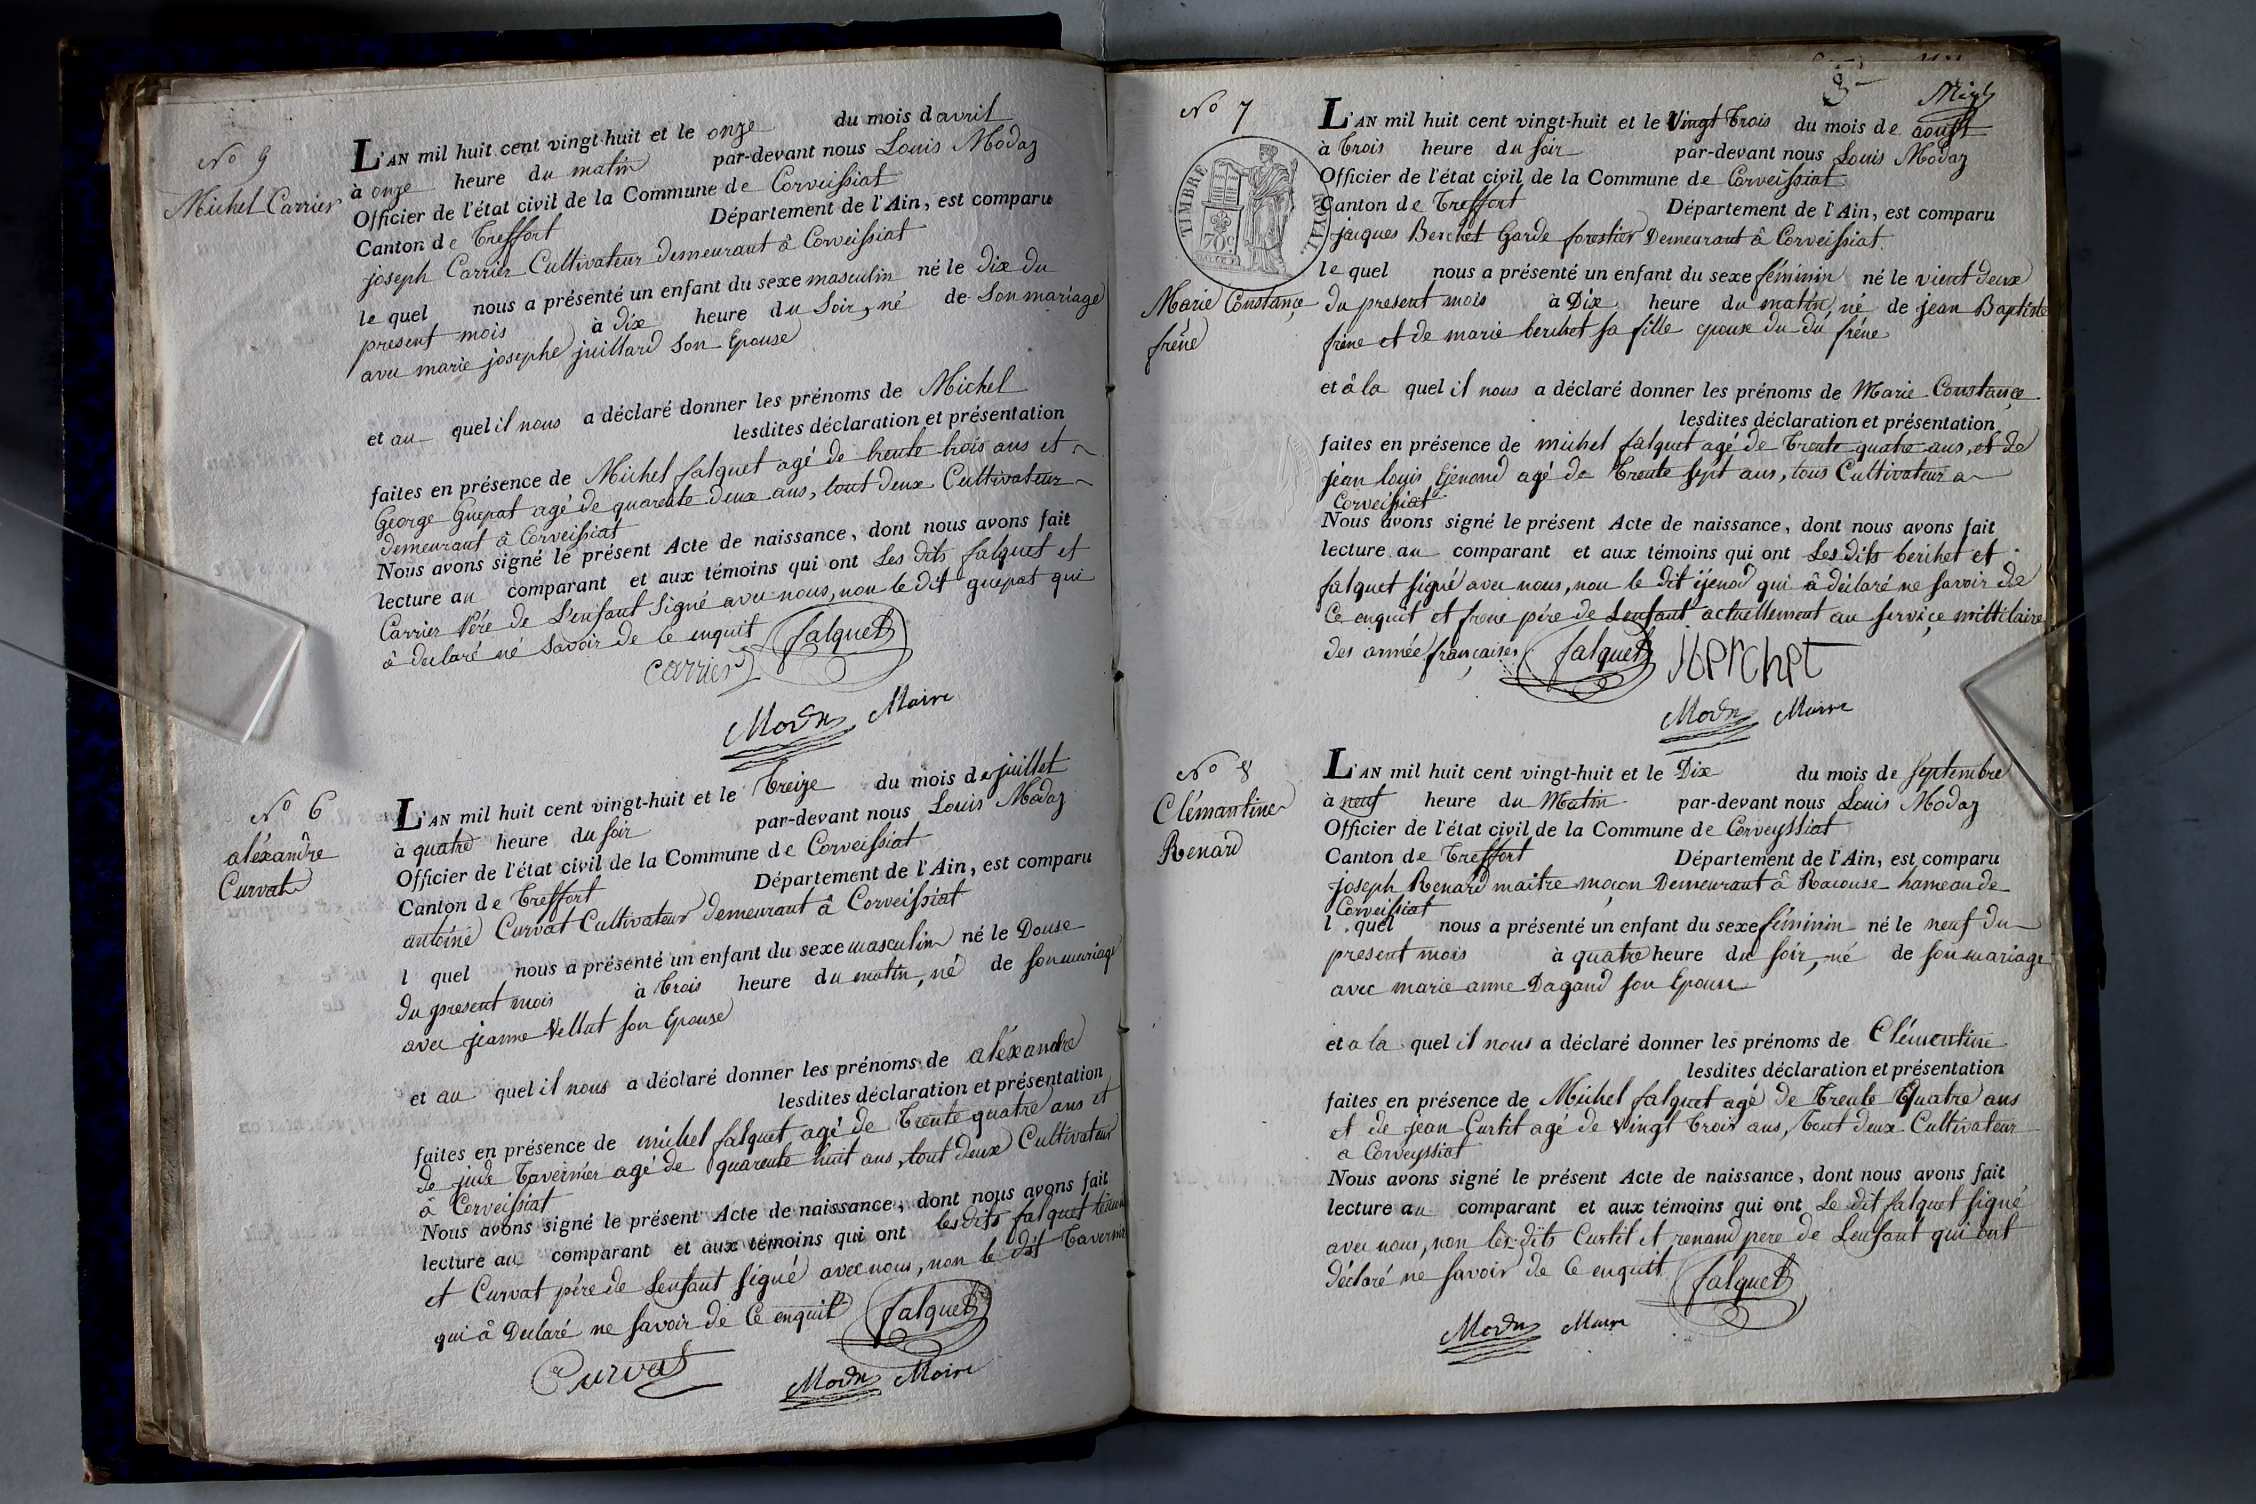 No 5
Michel Carrier
L'AN mil huit cent vingt-huit et le onze du mois davril
à onze heure du matin par-devant nous Louis Modaz
Officier de l'état civil de la Commune de Corveissiat
Canton de Treffort Département de l'Ain, est comparu
joseph Carrier Cultivateur demeurant â Corveissiat
le quel nous a présenté un enfant du sexe masculin né le dix du
present mois à dix heure du Soir, né de Son mariage
avec marie josephe juillard Son Epouse
et au quel il nous a déclaré donner les prénoms de Michel
lesdites déclaration et présentation
faites en présence de Michel falquet agé de trente trois ans et
George Guepat agé de quarente deux ans, tout deux Cultivateur
demeurant â Corveissiat
Nous avons signé le présent Acte de naissance, dont nous avons fait
lecture au comparant et aux témoins qui ont Les dits falquet et
Carrier Péré de L'enfant Signé avec nous, non le dit guepat qui
â declaré né Savoir de Ce enquit falquet
carrier
Modaz Maire
No 6
aléxandre
Curvat
L'AN mil huit cent vingt-huit et le Treize du mois de juillet
à quatre heure du soir par-devant nous Louis Modaz
Officier de l'état civil de la Commune de Corveissiat
Canton de Treffort Département de l'Ain, est comparu
antoine Curvat Cultivateur demeurant â Corveissiat
l quel nous a présenté un enfant du sexe masculin né le Douse
du present mois à Trois heure du matin, né de son mariage
avec jeanne Vellat son Epouse
et au quel il nous a déclaré donner les prénoms de aléxandre
lesdites déclaration et présentation
faites en présence de michel falquet agé de Trente quatre ans et
de jude Tavernier agé de quarente huit ans, tout deux Cultivateur
â Corveissiat
Nous avons signé le présent Acte de naissance, dont nous avons fait
lecture au comparant et aux témoins qui ont les dits falquet témoin
et Curvat pére de Lenfant signé avec nous, non le dit Tavernier
qui â Declaré ne savoir de Ce enquit falquet
Curvat
Modaz Maire
No 7
TIMBRE ROYAL
70c
Marie Constançe
frêne
L'AN mil huit cent vingt-huit et le Vingt Trois du mois de aoust
à Trois heure du soir par-devant nous Louis Modaz
Officier de l'état civil de la Commune de Corveissiat
Canton de Treffort Département de l'Ain, est comparu
jacques Berchet Garde forestier Demeurant â Corveissiat.
le quel nous a présenté un enfant du sexe féminin né le vient deux
du present mois à Dix heure du matin, né de jean Baptiste
frêne et de marie berchet sa fille epouse du du frêne
et â la quel il nous a déclaré donner les prénoms de Marie Constançe
lesdites déclaration et présentation
faites en présence de michel falquet agé de Trente quatre ans, et de
jean louis Ijenoud agé de Trente sept ans, tous Cultivateur a
Corveissiat
Nous avons signé le présent Acte de naissance, dont nous avons fait
lecture au comparant et aux témoins qui ont Les dits berchet et
falquet signé avec nous, non le dit ijenod qui â déclaré ne savoir de
Ce enquit et frene pére de Lenfant actuellement au serviçe millitaire
des année françaises falquet jberchet
Modaz Maire
No 8
Clémantine
Renard
L'AN mil huit cent vingt-huit et le Dix du mois de septembre
à neuf heure du Matin par-devant nous Louis Modaz
Officier de l'état civil de la Commune de Corveyssiat
Canton de Treffort Département de l'Ain, est comparu
joseph Renard maitre maçon Demeurant â Racouse hameau de
Corveissiat
l quel nous a présenté un enfant du sexe féminin né le neuf du
present mois à quatre heure du soir, né de son mariage
avec marie anne Dagand son Epouse
et a la quel il nous a déclaré donner les prénoms de Clémentine
lesdites déclaration et présentation
faites en présence de Michel falquet agé de Trente Quatre ans
et de jean Curtit agé de Vingt Trois ans, Tout deux Cultivateur
a Corveyssiat
Nous avons signé le présent Acte de naissance, dont nous avons fait
lecture au comparant et aux témoins qui ont Le dit falquet signé
avec nous, non les dits Curtit et renand pere de Lenfant qui ont
déclaré ne savoir de Ce enquit falquet
Modaz Maire